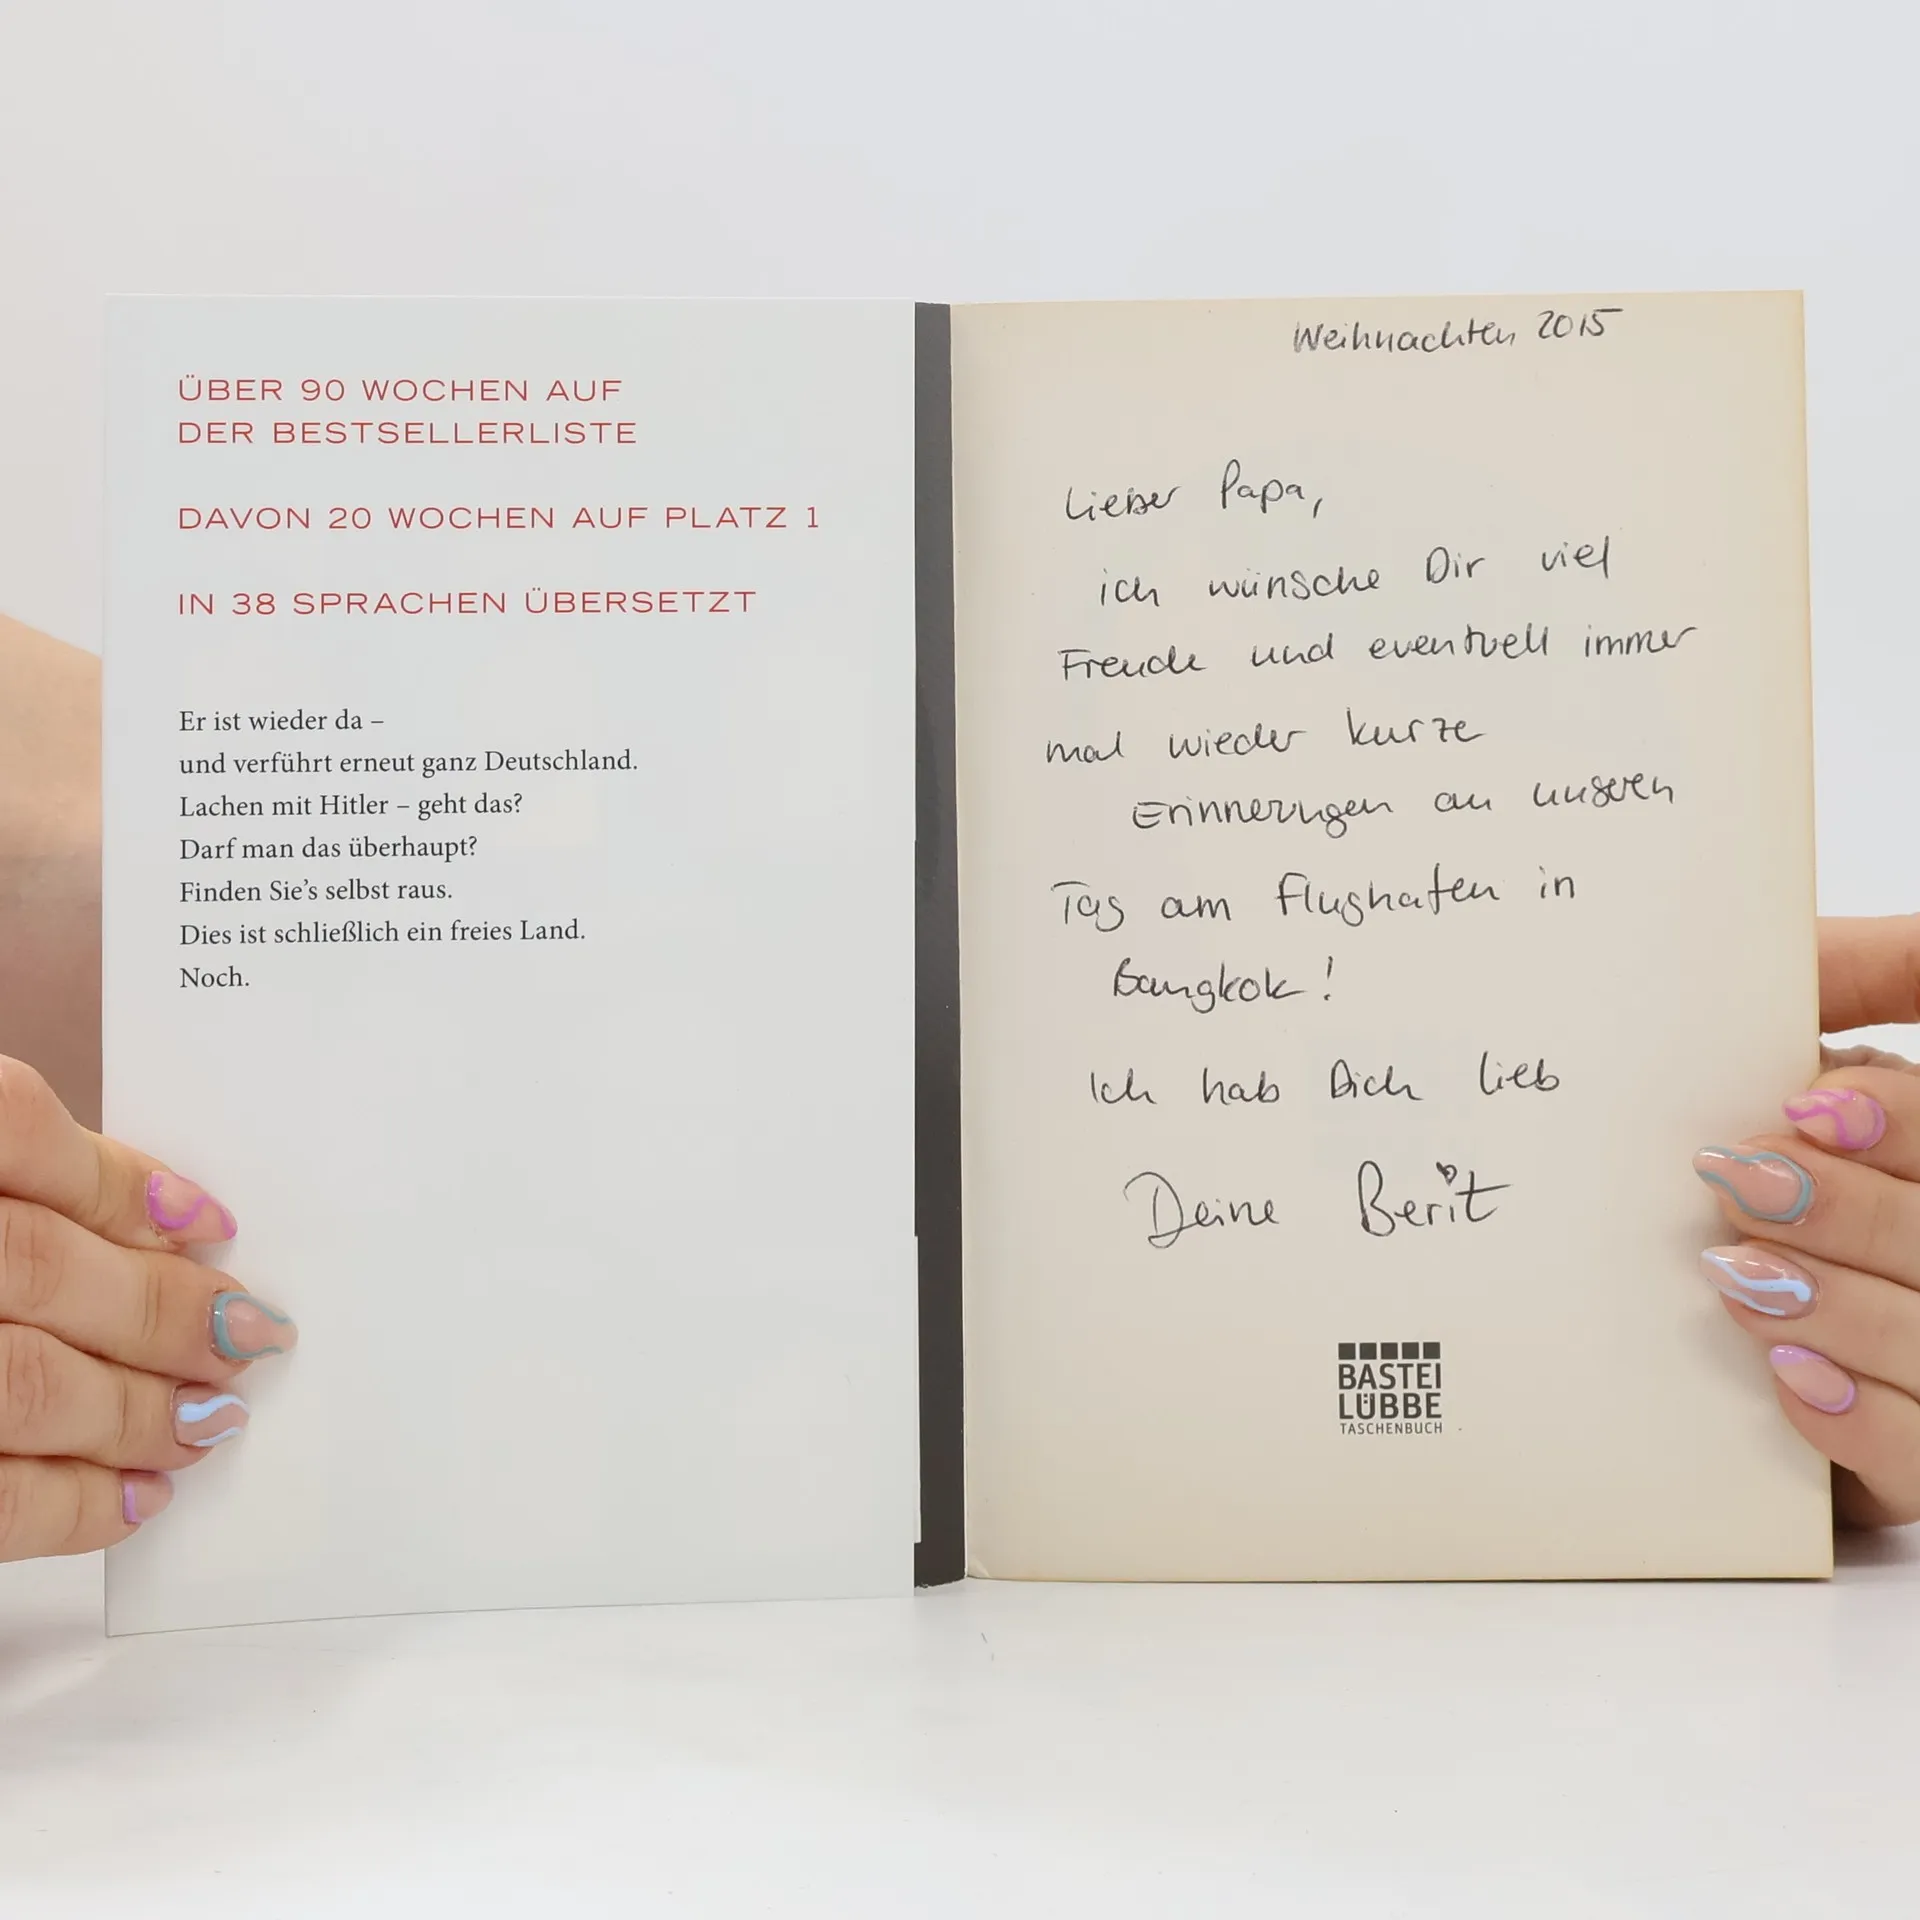 ÜBER 90 WOCHEN AUF
DER BESTSELLERLISTE
DAVON 20 WOCHEN AUF PLATZ 1
IN 38 SPRACHEN ÜBERSETZT
Er ist wieder da –
und verführt erneut ganz Deutschland.
Lachen mit Hitler – geht das?
Darf man das überhaupt?
Finden Sie’s selbst raus.
Dies ist schließlich ein freies Land.
Noch.
Weihnachten 2015
Lieber Papa,
ich wünsche Dir viel
Freude und eventuell immer
mal wieder kurze
Erinnerungen an unseren
Tag am Flughafen in
Bangkok!
Ich hab Dich lieb
Deine Berit
BASTEI
LÜBBE
TASCHENBUCH